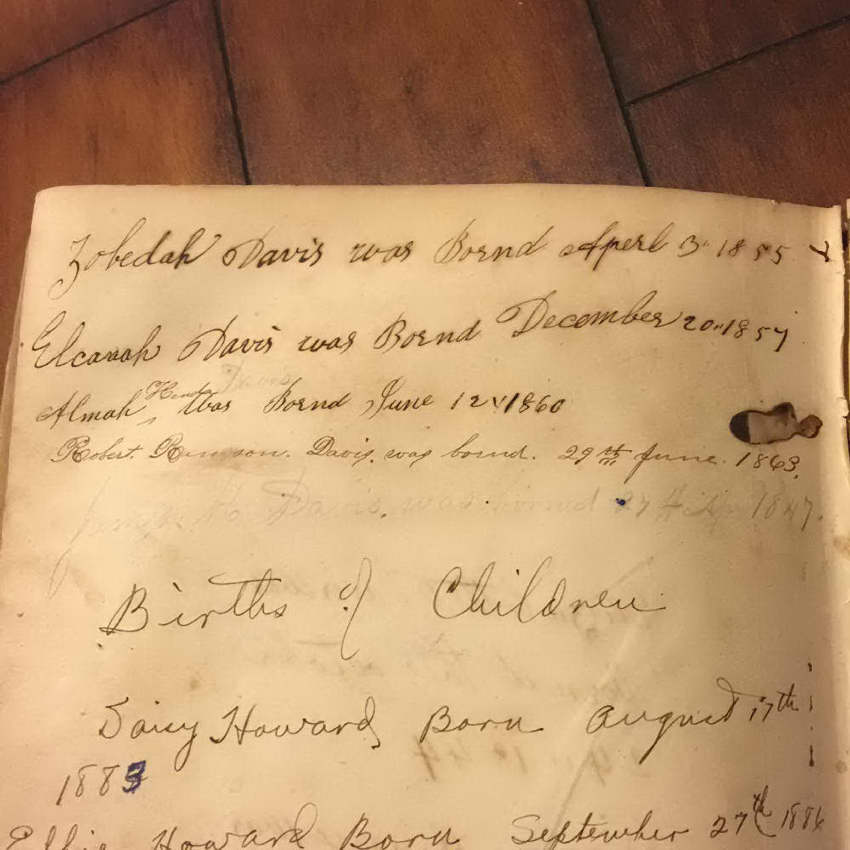 Zobedah Davis was Bornd Aperl 3 1855
Elcanah Davis was Bornd December 20 1857
Almah Was Bornd June 12 1860
Robert Davis was bornd. 29th June. 1863.
Davis was bornd 27th 1847.
Births of Children
Daisy Howard Born August 17th
1883
Ellie Howard Born September 27th 1886